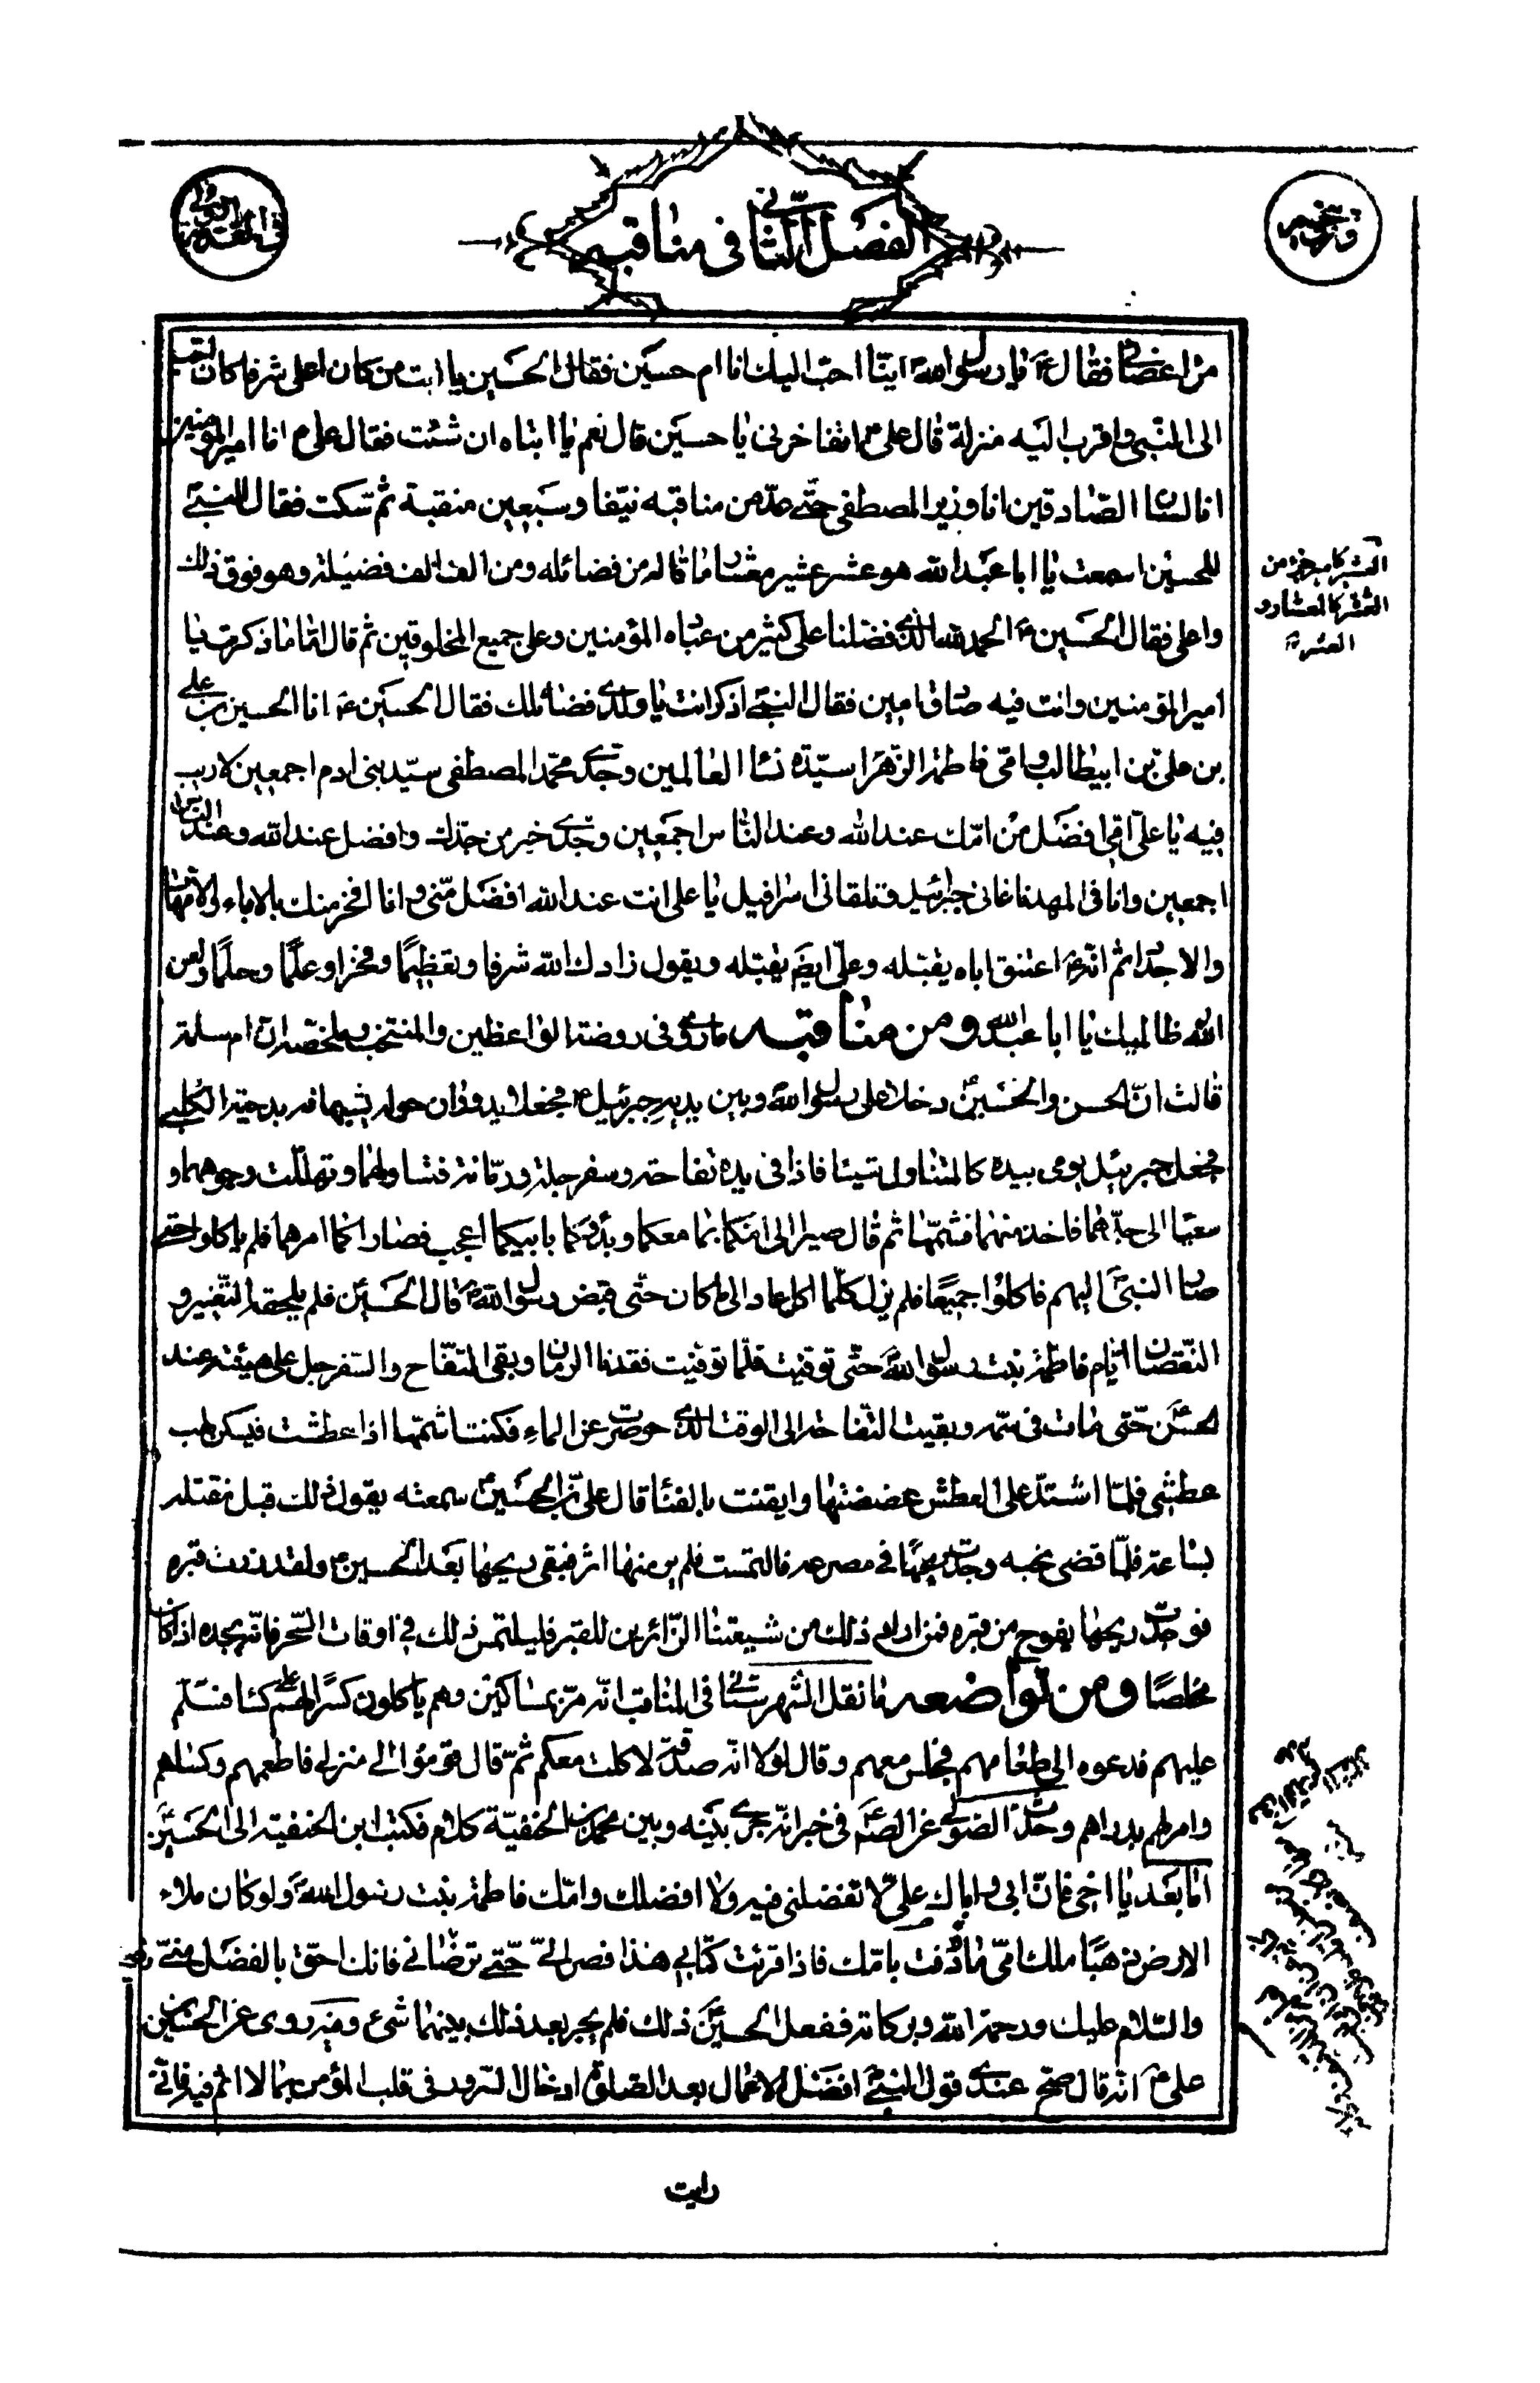 الفصل الثاني في مناقبه
من اعضائها فقال ع يا رسول الله اينا احب اليك انا ام حسين فقال الحسين يا ابت من كان اعلى شرفا كان احب
الى النبي و اقرب اليه منزلة قال علي ع اتفاخرني يا حسين قال نعم يا ابتاه ان شئت فقال علي ع انا امير المؤمنين
انا لسان الصادقين انا وزير المصطفى حتى عد من مناقبه نيفا و سبعين منقبة ثم سكت فقال النبي
للحسين اسمعت يا ابا عبد الله هو عشر عشير معشار ما قاله من فضائله ومن الف الف فضيلة وهو فوق ذلك
و اعلى فقال الحسين ع الحمد لله الذي فضلنا على كثير من عباده المؤمنين وعلى جميع المخلوقين ثم قال اما ما ذكرت يا
امير المؤمنين وانت فيه صادق امين فقال النبي اذكر انت يا ولدي فضائلك فقال الحسين ع انا الحسين بن علي
بن علي بن ابيطالب و امي فاطمة الزهراء سيدة نساء العالمين وجدي محمد المصطفى سيد بني ادم اجمعين لا ريب
فيه يا علي امي افضل من امك عند الله وعند الناس اجمعين وجدي خير من جدك وافضل عند الله وعند الناس
اجمعين وانا في المهد ناغاني جبرئيل وتلقاني اسرافيل يا علي انت عند الله افضل مني و انا افخر منك بالاباء والامهات
والاجداد ثم انه ع اعتنق اباه يقبله وعلي ايضا يقبله ويقول زادك الله شرفا وتعظيما وفخرا وعلما وحلما ولعن
الله ظالميك يا ابا عبد الله ومن مناقبه ما روي في روضة الواعظين والمنتخب و ملخصه ان ام سلمة
قالت ان الحسن والحسين دخلا على رسول الله وبين يديه جبرئيل ع فجعلا يدوران حوله يشبهانه بدحية الكلبي
فجعل جبرئيل يومي بيده كالمتناول شيئا فاذا في يده تفاحة وسفرجلة ورمانة فتناولهما وتهللت وجوههما و
سعيا الى جدهما فاخذ منهما فشمها ثم قال صيرا الى امكما بما معكما وبدؤكما بابيكما اعجب فصارا كما امرهما فلم ياكلوا حتى
صار النبي اليهم فاكلوا جميعا فلم يزل كلما اكل عاد الى ما كان حتى قبض رسول الله قال الحسين فلم يلحقه التغيير و
النقصان ايام فاطمة بنت رسول الله حتى توفيت فلما توفيت فقدنا الرمان وبقي التفاح والسفرجل على هيئته عند
الحسن حتى مات في سمه وبقيت التفاحة الى الوقت الذي حوصرت عن الماء فكنت اشمها اذا عطشت فيسكن لهب
عطشي فلما اشتد علي العطش عضضتها وايقنت بالفناء قال علي بن الحسين سمعته يقول ذلك قبل مقتله
بساعة فلما قضى نحبه وجد ريحها في مصرعه فالتمست فلم ير منها اثر فبقي ريحها بعد الحسين ع ولقد زرت قبره
فوجدت ريحها يفوح من قبره فمن اراد ذلك من شيعتنا الزائرين للقبر فليلتمس ذلك في اوقات السحر فانه يجده اذا كان
مخلصا ومن تواضعه ما نقل الشهرستاني في المناقب انه مر بمساكين وهم ياكلون كسرا لهم على كساء فسلم
عليهم فدعوه الى طعامهم فجلس معهم وقال لولا انه صدقة لاكلت معكم ثم قال قوموا الى منزلي فاطعمهم وكساهم
وامر لهم بدراهم وحدث الصولي عن الصادق في خبر انه جرى بينه وبين محمد بن الحنفية كلام فكتب ابن الحنفية الى الحسين
اما بعد يا اخي فان ابي و اباك علي لا تفضلني فيه ولا افضلك وامك فاطمة بنت رسول الله ولو كان ملاء
الارض ذهبا ملك امي ما وفت بامك فاذا قرئت كتابي هذا فصر الي حتى ترضاني فانك احق بالفضل مني
والسلام عليك ورحمة الله وبركاته ففعل الحسين ذلك فلم يجر بعد ذلك بينهما شئ ومنه روى عن الحسين بن
علي ع انه قال صح عندي قول النبي افضل الاعمال بعد الصلوة ادخال السرور في قلب المؤمن بما لا اثم فيه فاني
العشير كامير جزء من
العشر كالمعشار و
العشر
رايت